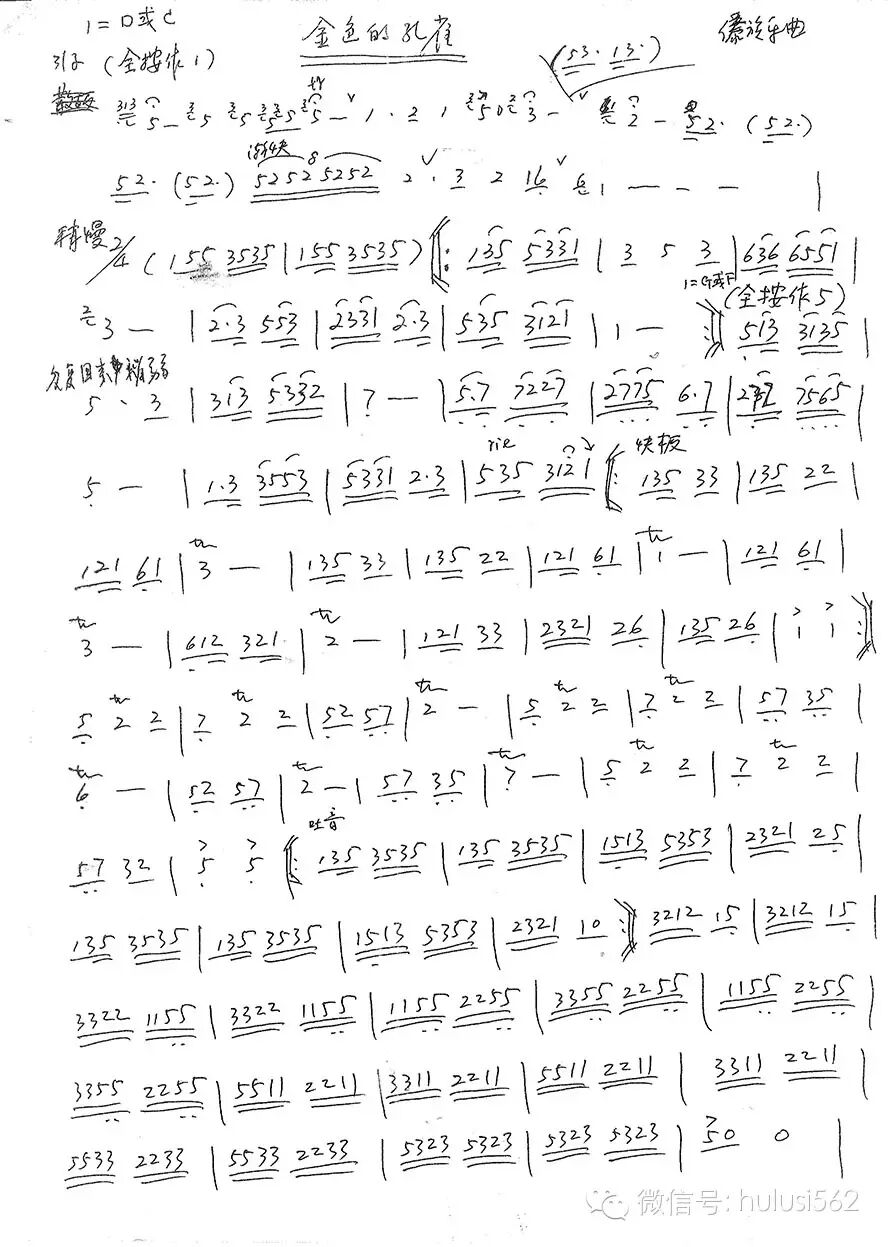 1=D或C 金色的孔雀 傣族乐曲
引子 (全按作1) (53. 13.)
散板 313 5 — 5 5 5 5 5 — ∨ 1 . 2 1 5 0 3 — ∨ 2 — 52. (52.)
52. (52.) 渐快 8 52525252 2 ∨ . 3 2 16 ∨ 6 1 — — — — |
稍慢 2/4 (155 3535 | 155 3535) ‖: 135 5331 | 3 5 3 | 636 6551 |
1=G或F (全按作5)
3 — | 2.3 553 | 2331 2.3 | 535 3121 | 1 — :‖ 513 3135 |
反复回来
5 . 3 | 313 5332 | 7 — | 5.7 7227 | 2775 6.7 | 7565 |
5 — | 1.3 3553 | 5331 2.3 | rit 535 3121 ‖: 快板 135 33 | 135 22 |
121 61 | tr 3 — | 135 33 | 135 22 | 121 61 | tr 1 — | 121 61 |
tr 3 — | 612 321 | tr 2 — | 121 33 | 2321 26 | 135 26 | > 1 > 1 :‖
5 tr 2 2 | 7 tr 2 2 | 52 57 | tr 2 — | 5 tr 2 2 | 7 tr 2 2 | 57 35 |
tr 6 — | 52 57 | tr 2 — | 57 35 | tr 7 — | 5 tr 2 2 | 7 tr 2 2 |
57 32 | > 5 > 5 ‖: 吐音 135 3535 | 135 3535 | 1513 5353 | 2321 25 |
135 3535 | 135 3535 | 1513 5353 | 2321 10 :‖ 3212 15 | 3212 15 |
3322 1155 | 3322 1155 | 1155 2255 | 3355 2255 | 1155 2255 |
3355 2255 | 5511 2211 | 3311 2211 | 5511 2211 | 3311 2211 |
5533 2233 | 5533 2233 | 5323 5323 | 5323 5323 | > 50 0 |
微信号: hulusi562